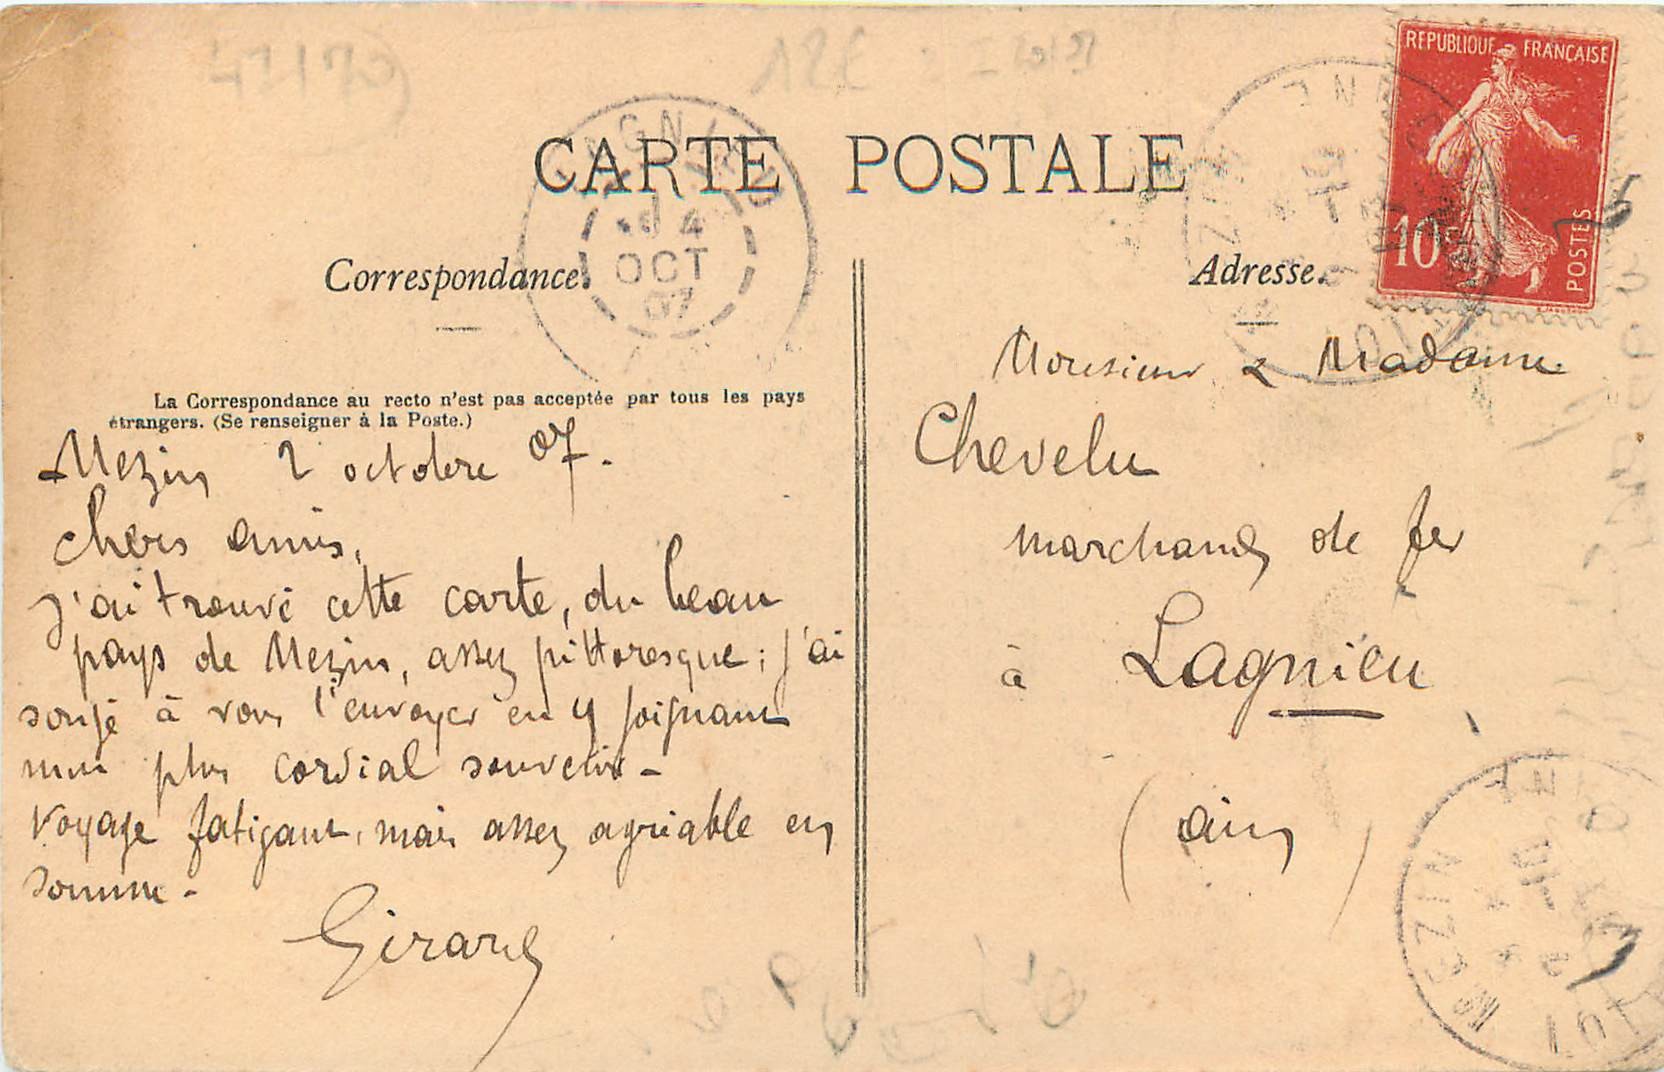 CARTE POSTALE
Correspondance.
La Correspondance au recto n'est pas acceptée par tous les pays
étrangers. (Se renseigner à la Poste.)
Mezin 2 octobre 07.
chers amis,
j'ai trouvé cette carte, du beau
pays de Mezin, assez pittoresque ; j'ai
songé à vous l'envoyer en y joignant
mon plus cordial souvenir -
Voyage fatigant, mais assez agréable en
somme -
Girard
Adresse.
Monsieur & Madame
Chevelu
marchand de fer
à Lagnieu
(ain)
REPUBLIQUE FRANÇAISE
10
POSTES
LAGNIEU
4
OCT
07
MEZIN
LOT